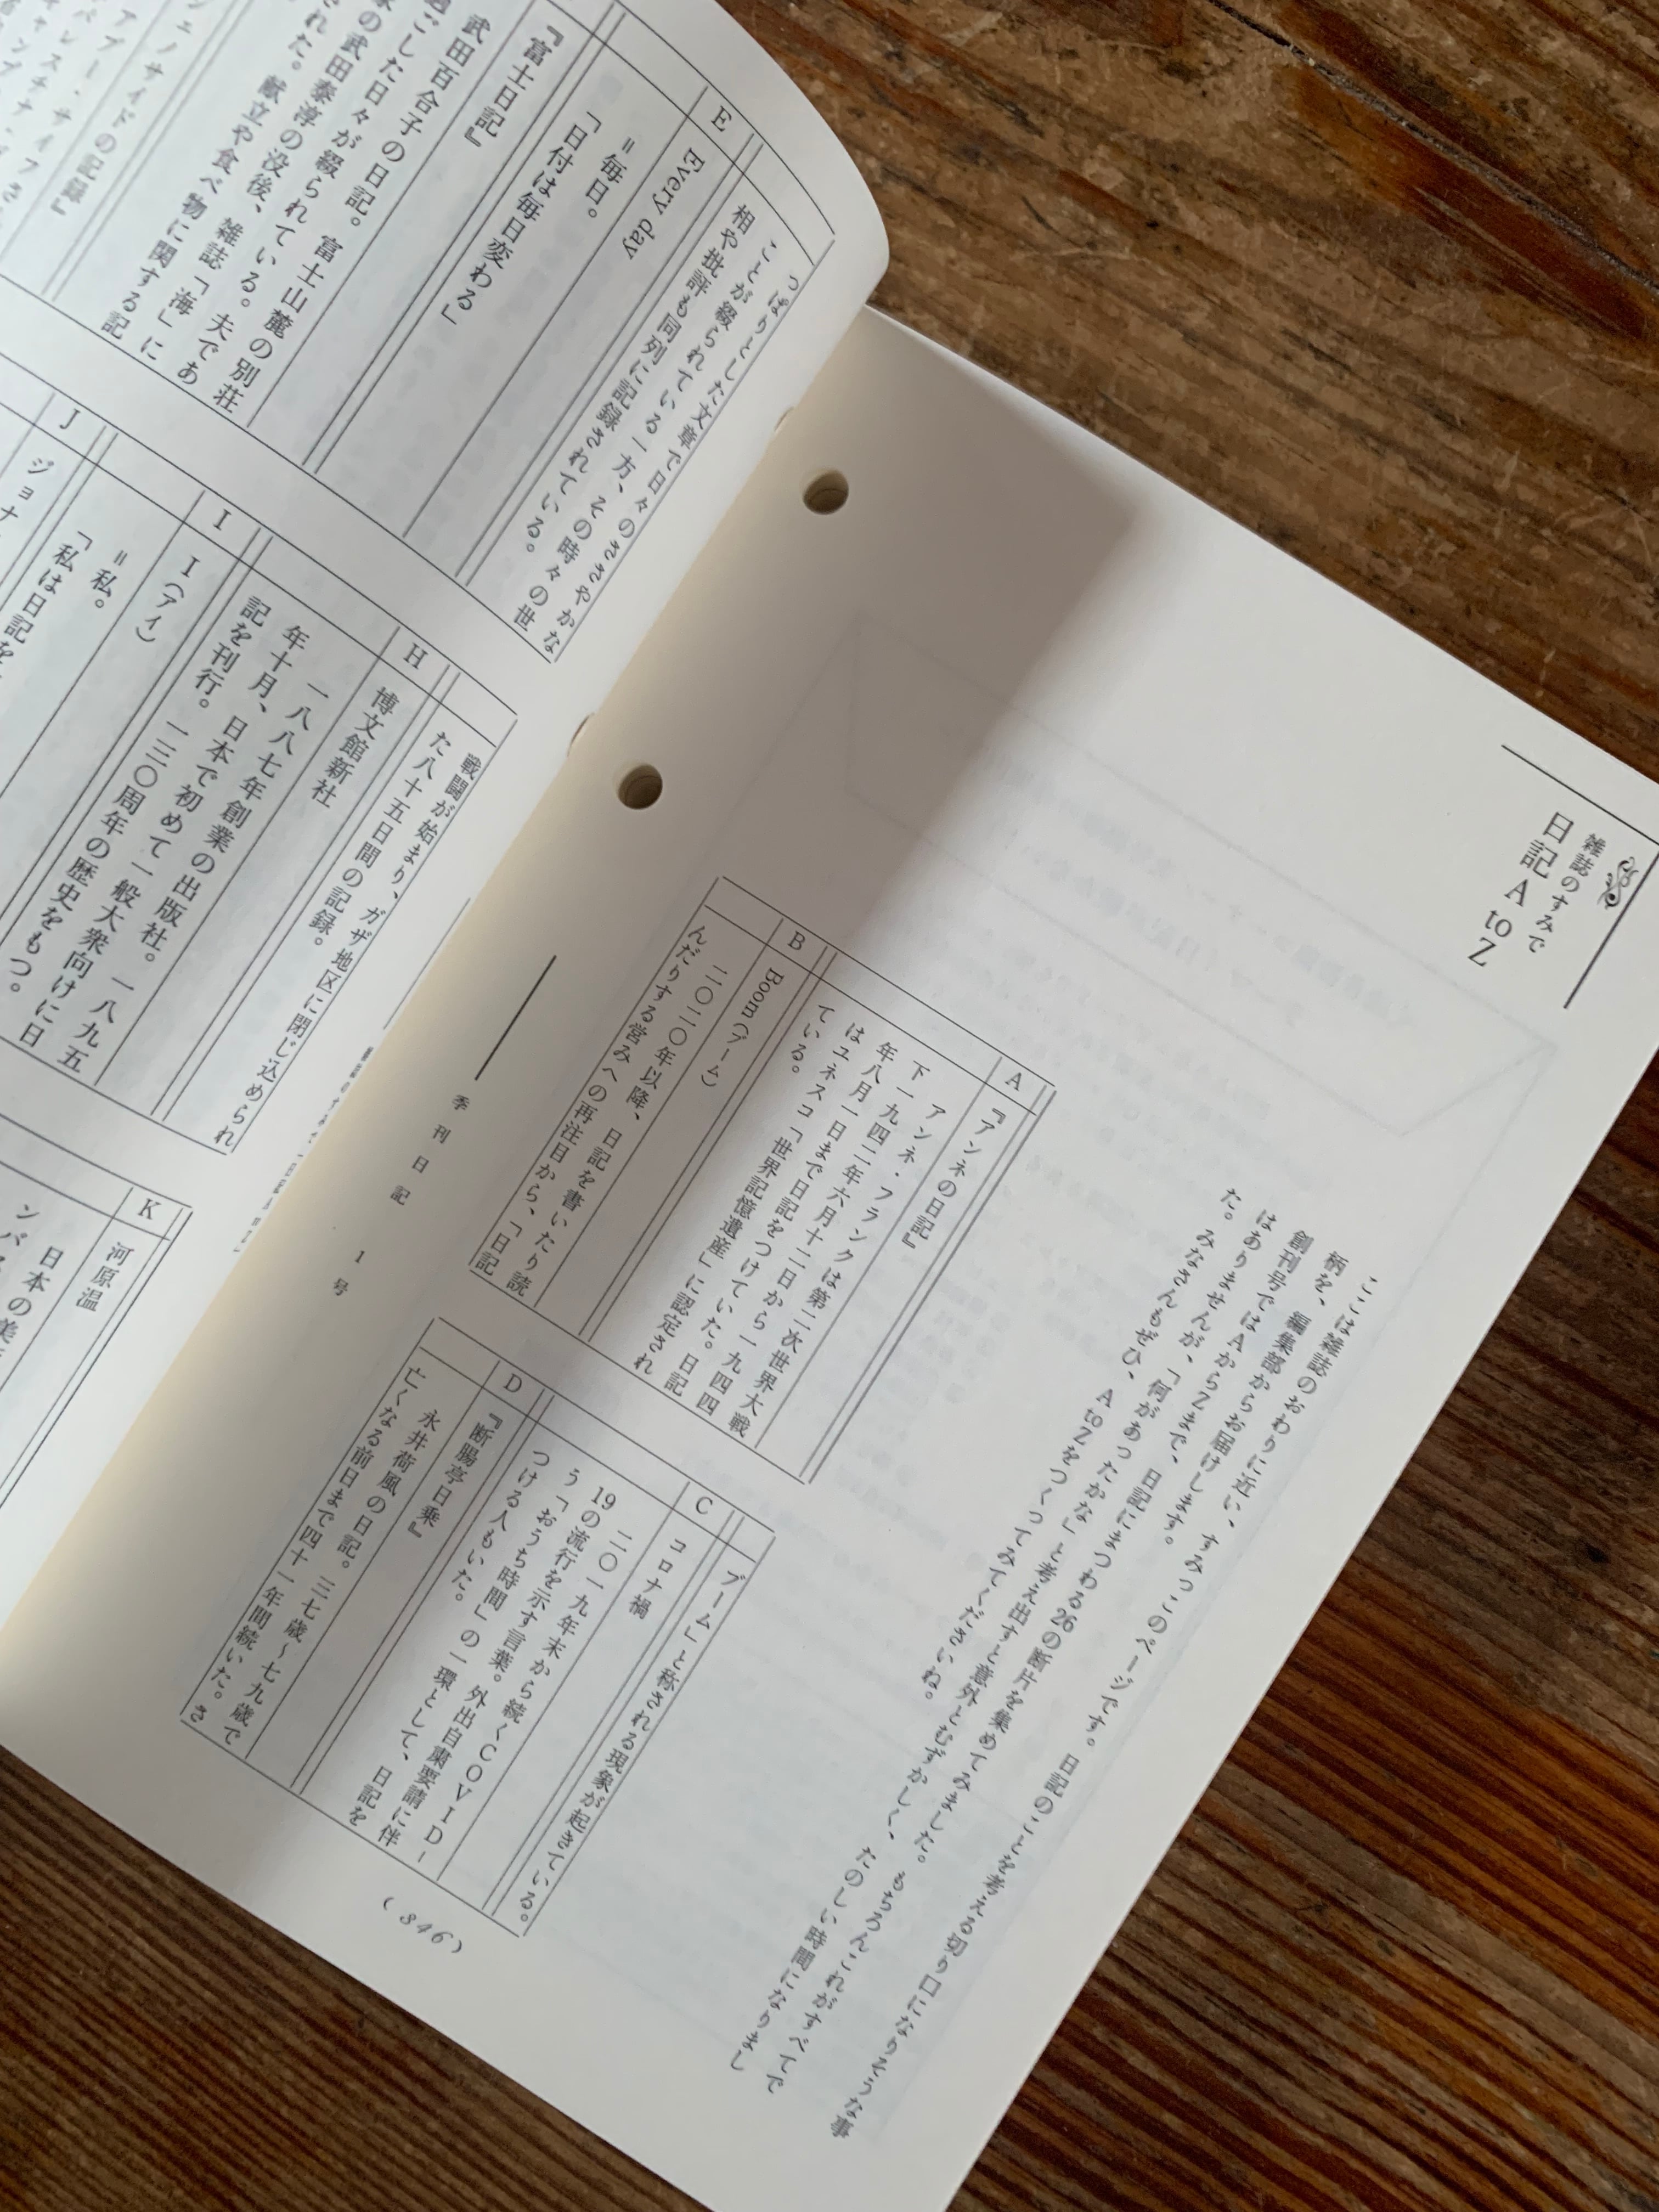 雑誌のすみで
日記 A to Z
ここは雑誌のおわりに近い、すみっこのページです。日記のことを考える切り口になりそうな事
柄を、編集部からお届けします。
創刊号ではAからZまで、日記にまつわる26の断片を集めてみました。もちろんこれがすべてで
はありませんが、「何があったかな」と考え出すと意外とむずかしく、たのしい時間になりまし
た。みなさんもぜひ、A to Zをつくってみてくださいね。
A
『アンネの日記』
アンネ・フランクは第二次世界大戦
下一九四二年六月十二日から一九四四
年八月一日まで日記をつけていた。日記
はユネスコ「世界記憶遺産」に認定され
ている。
B
Boom（ブーム）
二〇二〇年以降、日記を書いたり読
んだりする営みへの再注目から、「日記
ブーム」と称される現象が起きている。
C
コロナ禍
二〇一九年末から続くCOVID-
19の流行を示す言葉。外出自粛要請に伴
う「おうち時間」の一環として、日記を
つける人もいた。
D
『断腸亭日乗』
永井荷風の日記。三七歳〜七九歳で
亡くなる前日まで四十一年間続いた。さ
季刊日記 1号
(346)
っぱりとした文章で日々のささやかな
ことが綴られている一方、その時々の世
相や批評も同列に記録されている。
E
Every day
＝毎日。
「日付は毎日変わる」
『富士日記』
武田百合子の日記。富士山麓の別荘
過ごした日々が綴られている。夫であ
の武田泰淳の没後、雑誌「海」に
された。献立や食べ物に関する記
ジェノサイドの記録』
戦闘が始まり、ガザ地区に閉じ込められ
た八十五日間の記録。
H
博文館新社
一八八七年創業の出版社。一八九五
年十月、日本で初めて一般大衆向けに日
記を刊行。一三〇周年の歴史をもつ。
I
I（アイ）
＝私。
「私は日記を
J
ジョナ
K
河原温
日本の美